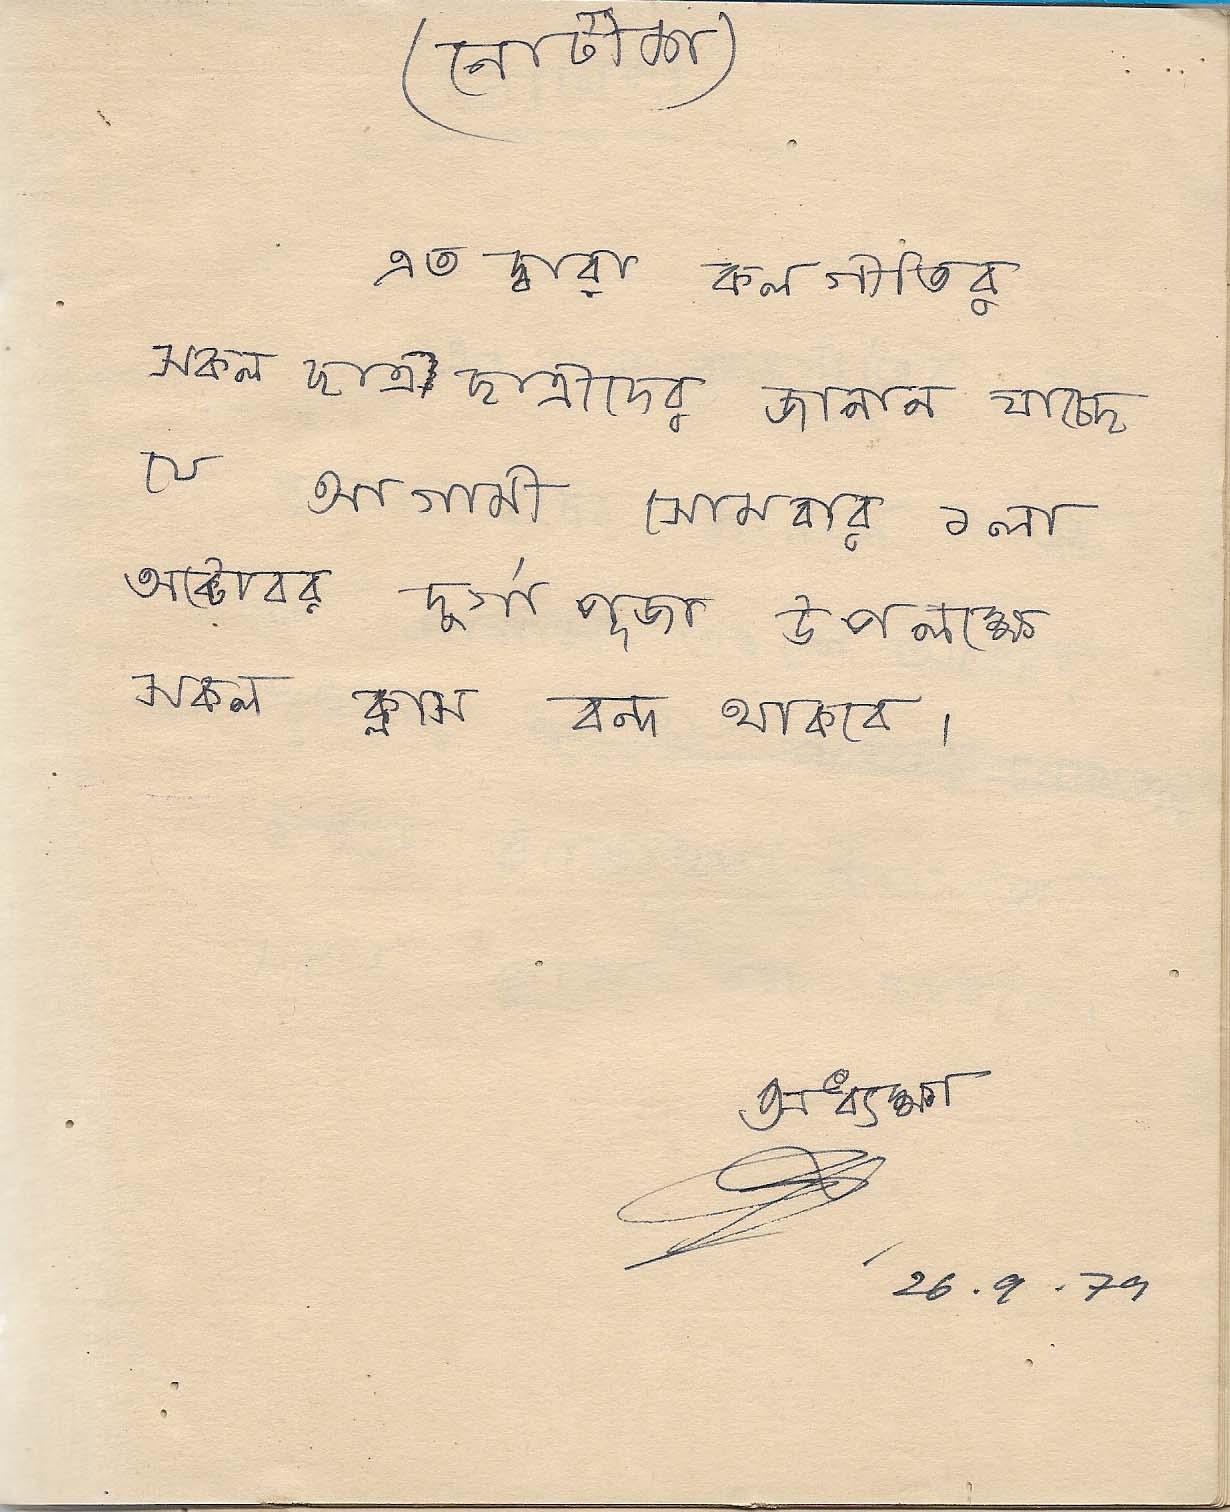 (নোটীশ)
এত দ্বারা কলগীতির
সকল ছাত্র ছাত্রীদের জানান যাচ্ছে
যে আগামী সোমবার ১লা
অক্টোবর দুর্গা পূজা উপলক্ষে
সকল ক্লাস বন্দ থাকবে।
অধ্যক্ষা
26.9.79